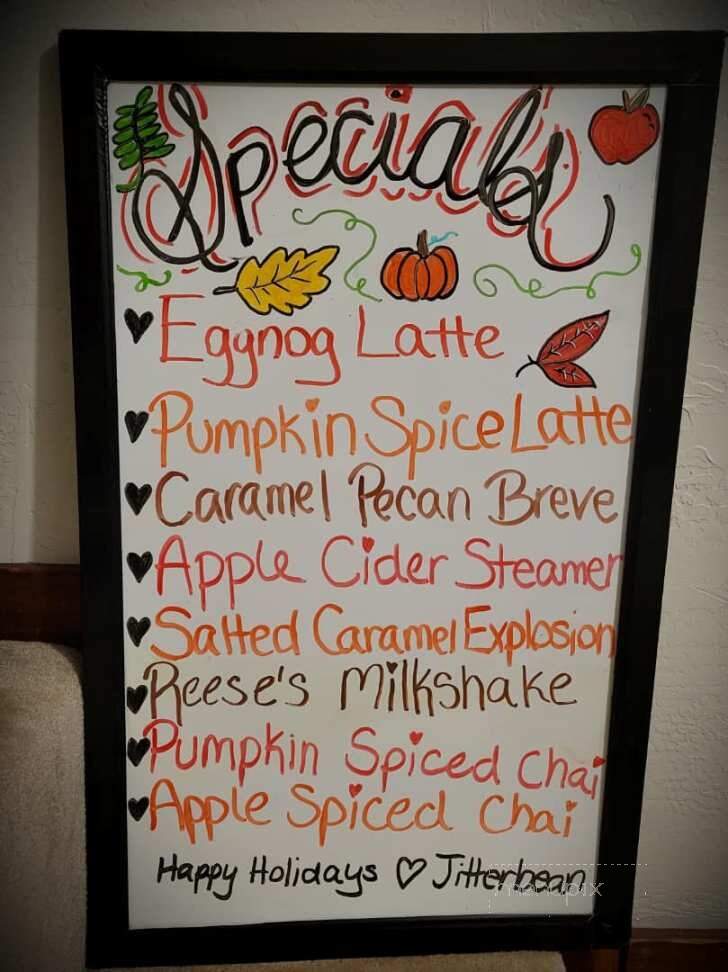 Specials
Eggnog Latte
Pumpkin Spice Latte
Caramel Pecan Breve
Apple Cider Steamer
Salted Caramel Explosion
Reese's Milkshake
Pumpkin Spiced Chai
Apple Spiced Chai
Happy Holidays ♡ Jitterbean
menupix